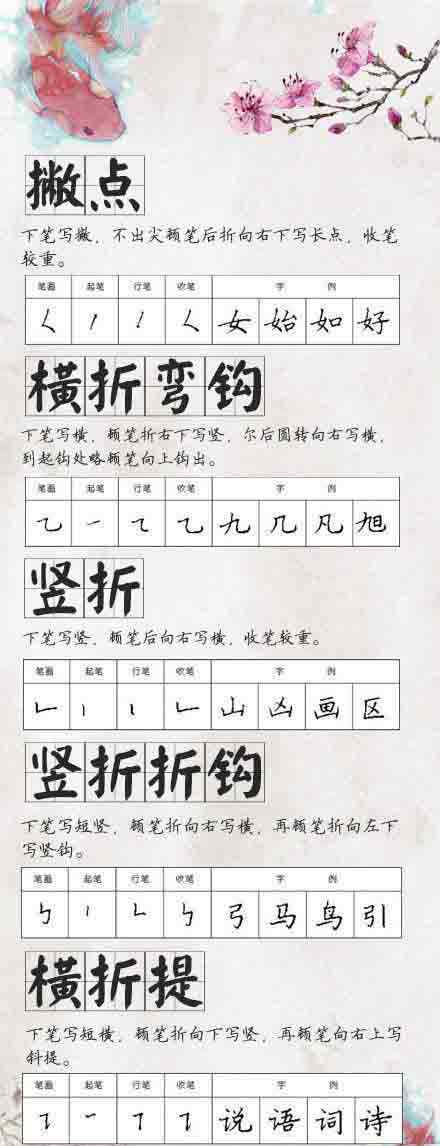 撇点
下笔写撇，不出尖顿笔后折向右下写长点，收笔
较重。
笔画 起笔 行笔 收笔 字 例
𡿨 女 始 如 好
横折弯钩
下笔写横，顿笔折右下写竖，尔后圆转向右写横，
到起钩处略顿笔向上钩出。
笔画 起笔 行笔 收笔 字 例
九 几 凡 旭
竖折
下笔写竖，顿笔后向右写横，收笔较重。
笔画 起笔 行笔 收笔 字 例
山 凶 画 区
竖折折钩
下笔写短竖，顿笔折向右写横，再顿笔折向左下
写竖钩。
笔画 起笔 行笔 收笔 字 例
弓 马 鸟 引
横折提
下笔写短横，顿笔折向下写竖，再顿笔向右上写
斜提。
笔画 起笔 行笔 收笔 字 例
说 语 词 诗